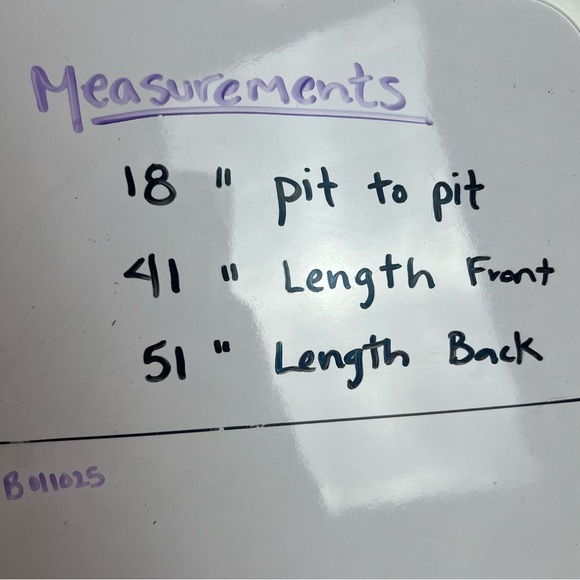 Measurements
18 " pit to pit
41 " Length Front
51 " Length Back
B011025